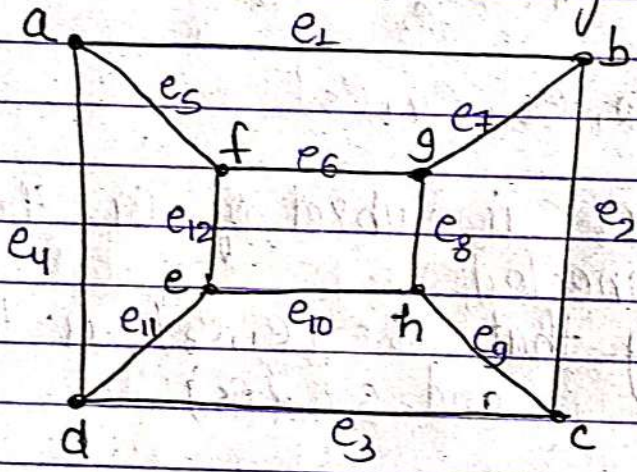 a e1 b
e5 e7
f e6 g
e4 e12 e8 e2
e e10 h
e11 e9
d e3 c